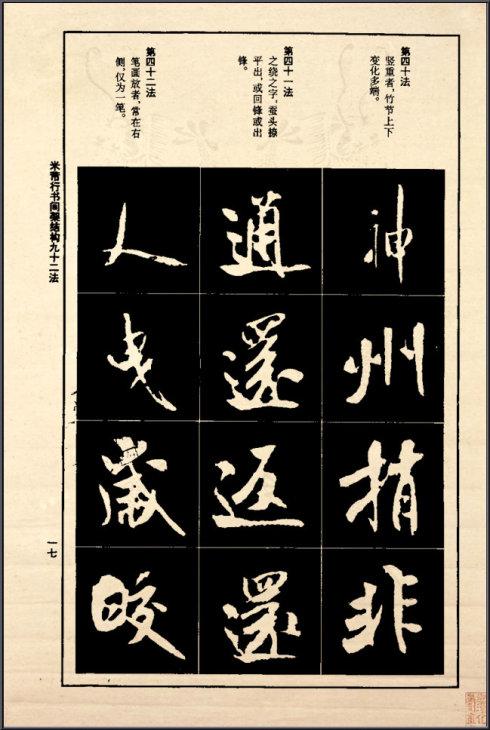 第四十法
竖重者，竹节上下
变化多端。
神州捎非
第四十一法
之绕之字，蚕头捺
平出，或回锋或出
锋。
通還返還
第四十二法
笔画放者，常在右
侧，仅为一笔。
人曳歲皎
米芾行书间架结构九十二法
一七